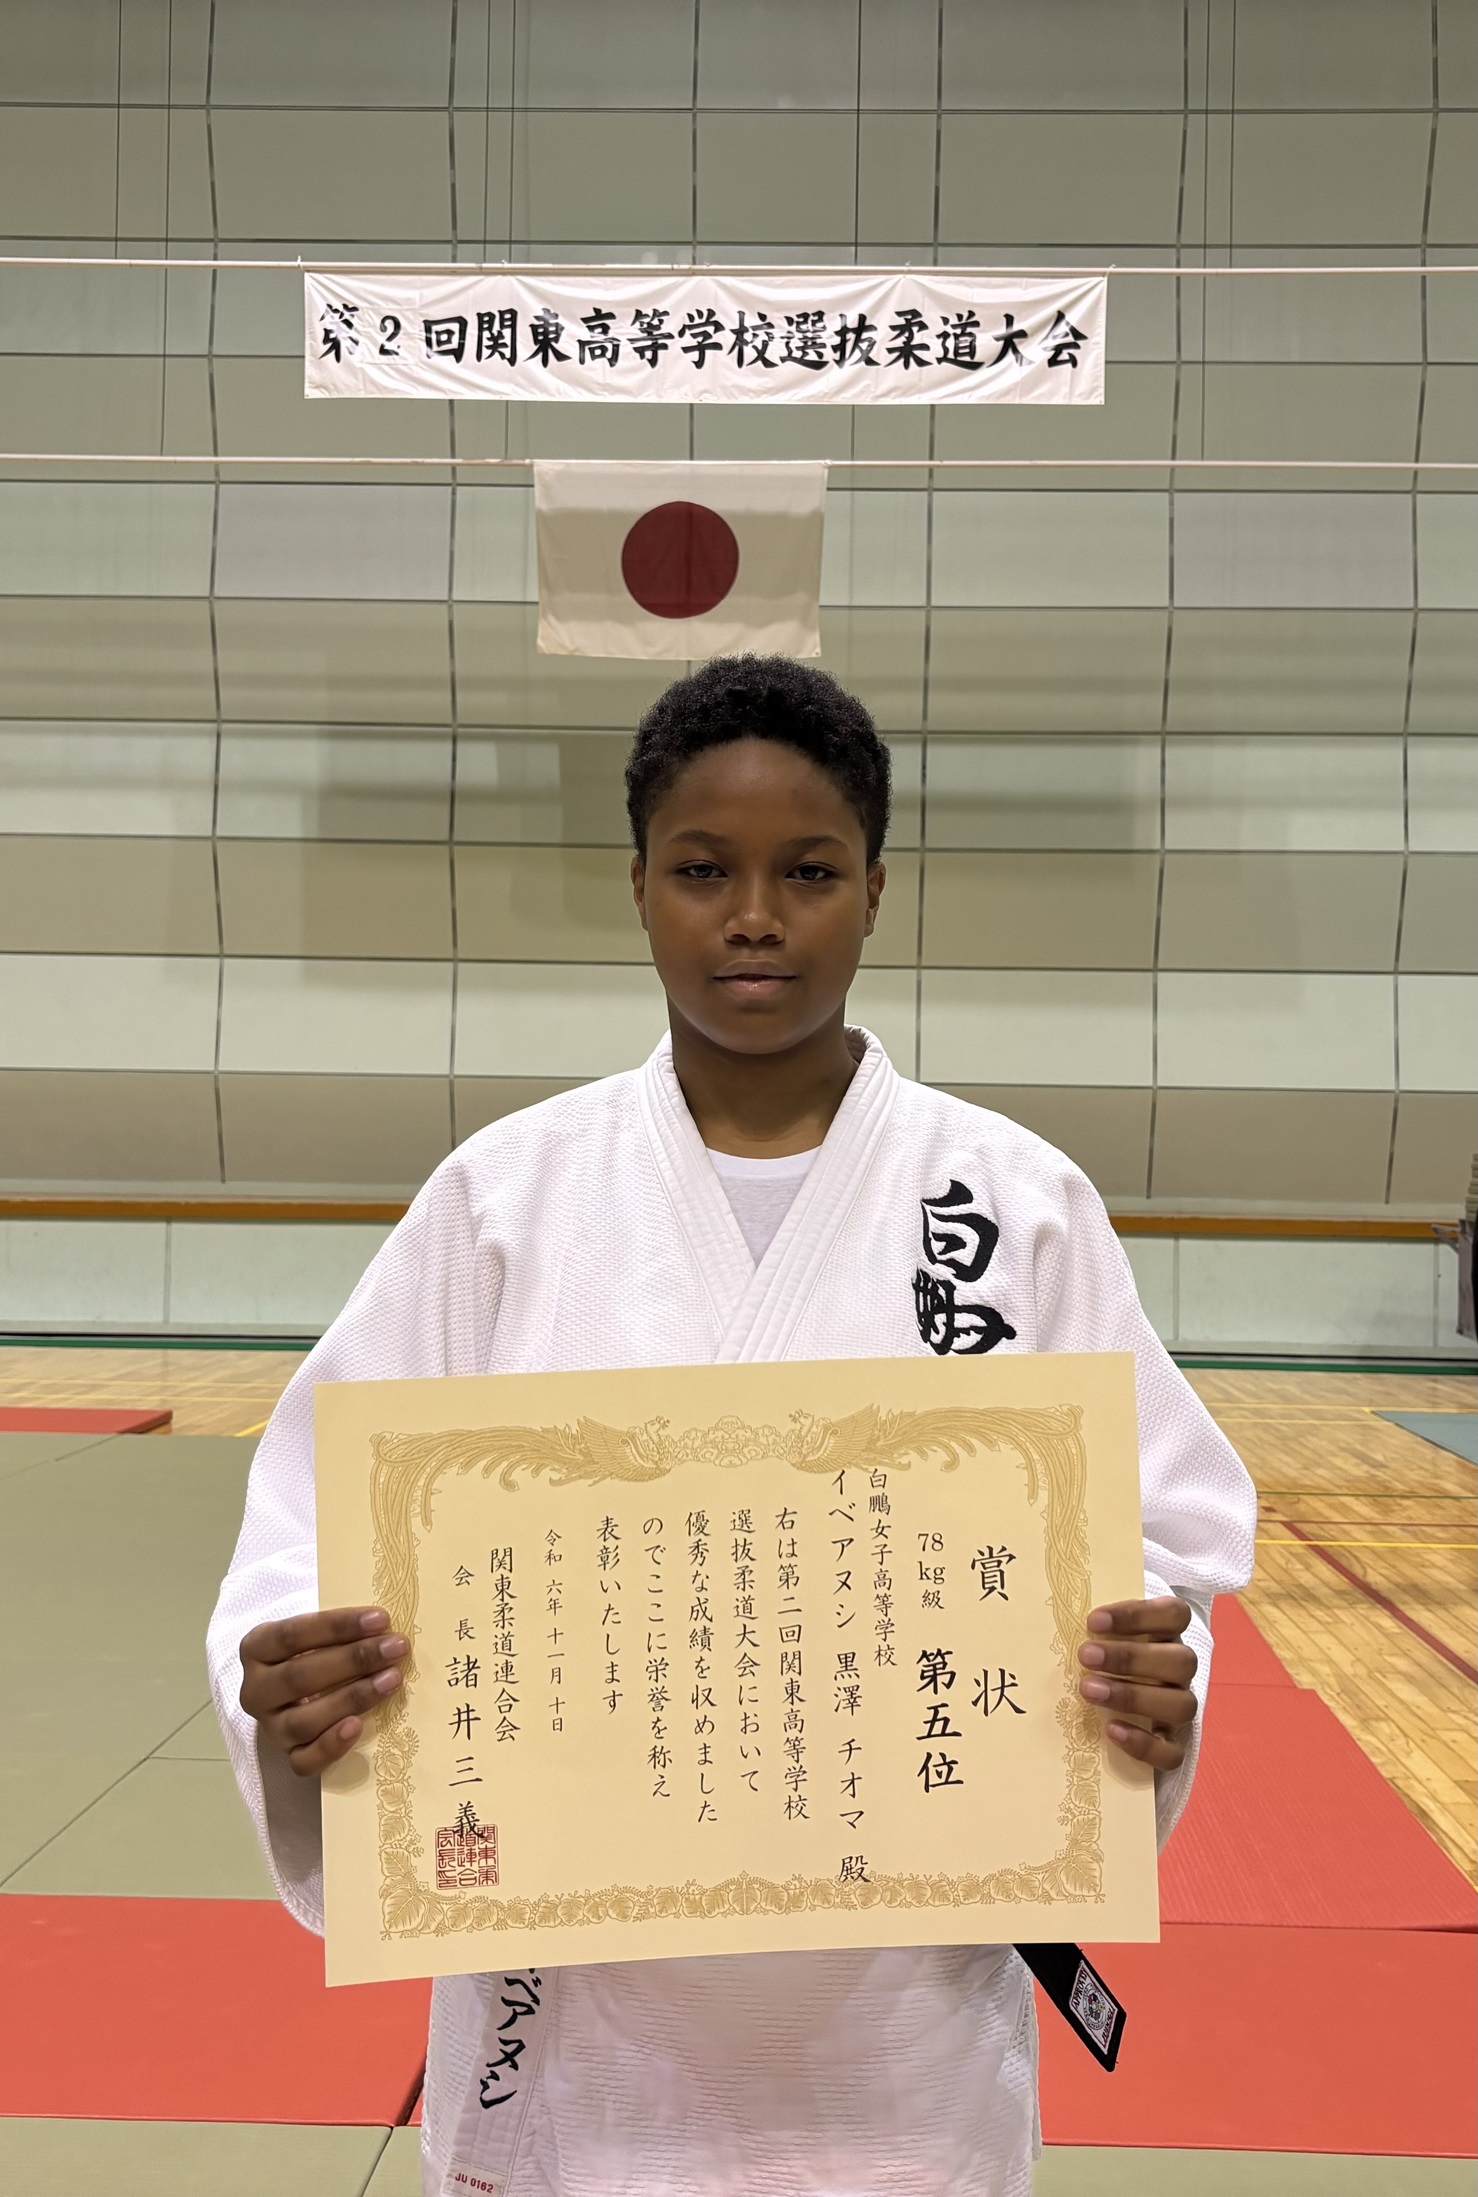 第2回関東高等学校選抜柔道大会
白鵬
賞状
78kg級 第五位
白鵬女子高等学校
イベアヌシ 黒澤 チオマ 殿
右は第二回関東高等学校
選抜柔道大会において
優秀な成績を収めました
のでここに栄誉を称え
表彰いたします
令和六年十一月十日
関東柔道連合会
会長 諸井三義
関東柔道連合会長印
ベアヌシ
JU 0162